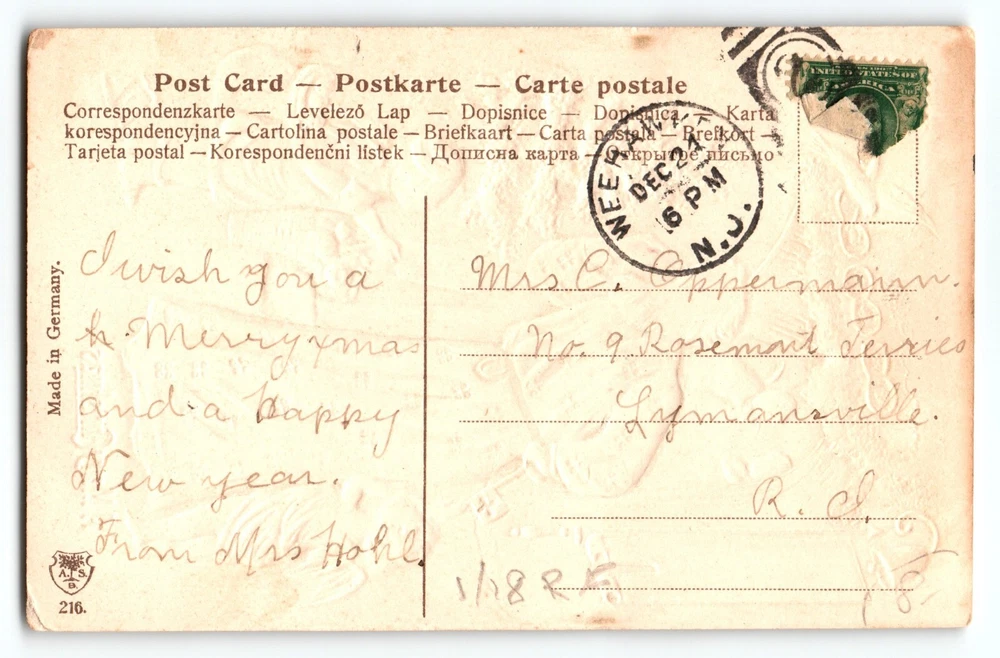 Post Card — Postkarte — Carte postale
Correspondenzkarte — Levelező Lap — Dopisnice — Dopisnica — Karta
korespondencyjna — Cartolina postale — Briefkaart — Carta postala — Brefkort —
Tarjeta postal — Korespondenčni listek — Дописна карта — Открытое письмо
UNITED STATES OF
AMERICA
WEEHAWKEN
DEC 24
6 PM
N.J.
Made in Germany.
I wish you a
h. Merry xmas
and a happy
New year.
From Mrs Hohl.
Mrs C. Oppermann.
No. 9 Rosemont Terries
Lymansville.
R. I.
A. S.
B.
216.
1/18 R F
8-